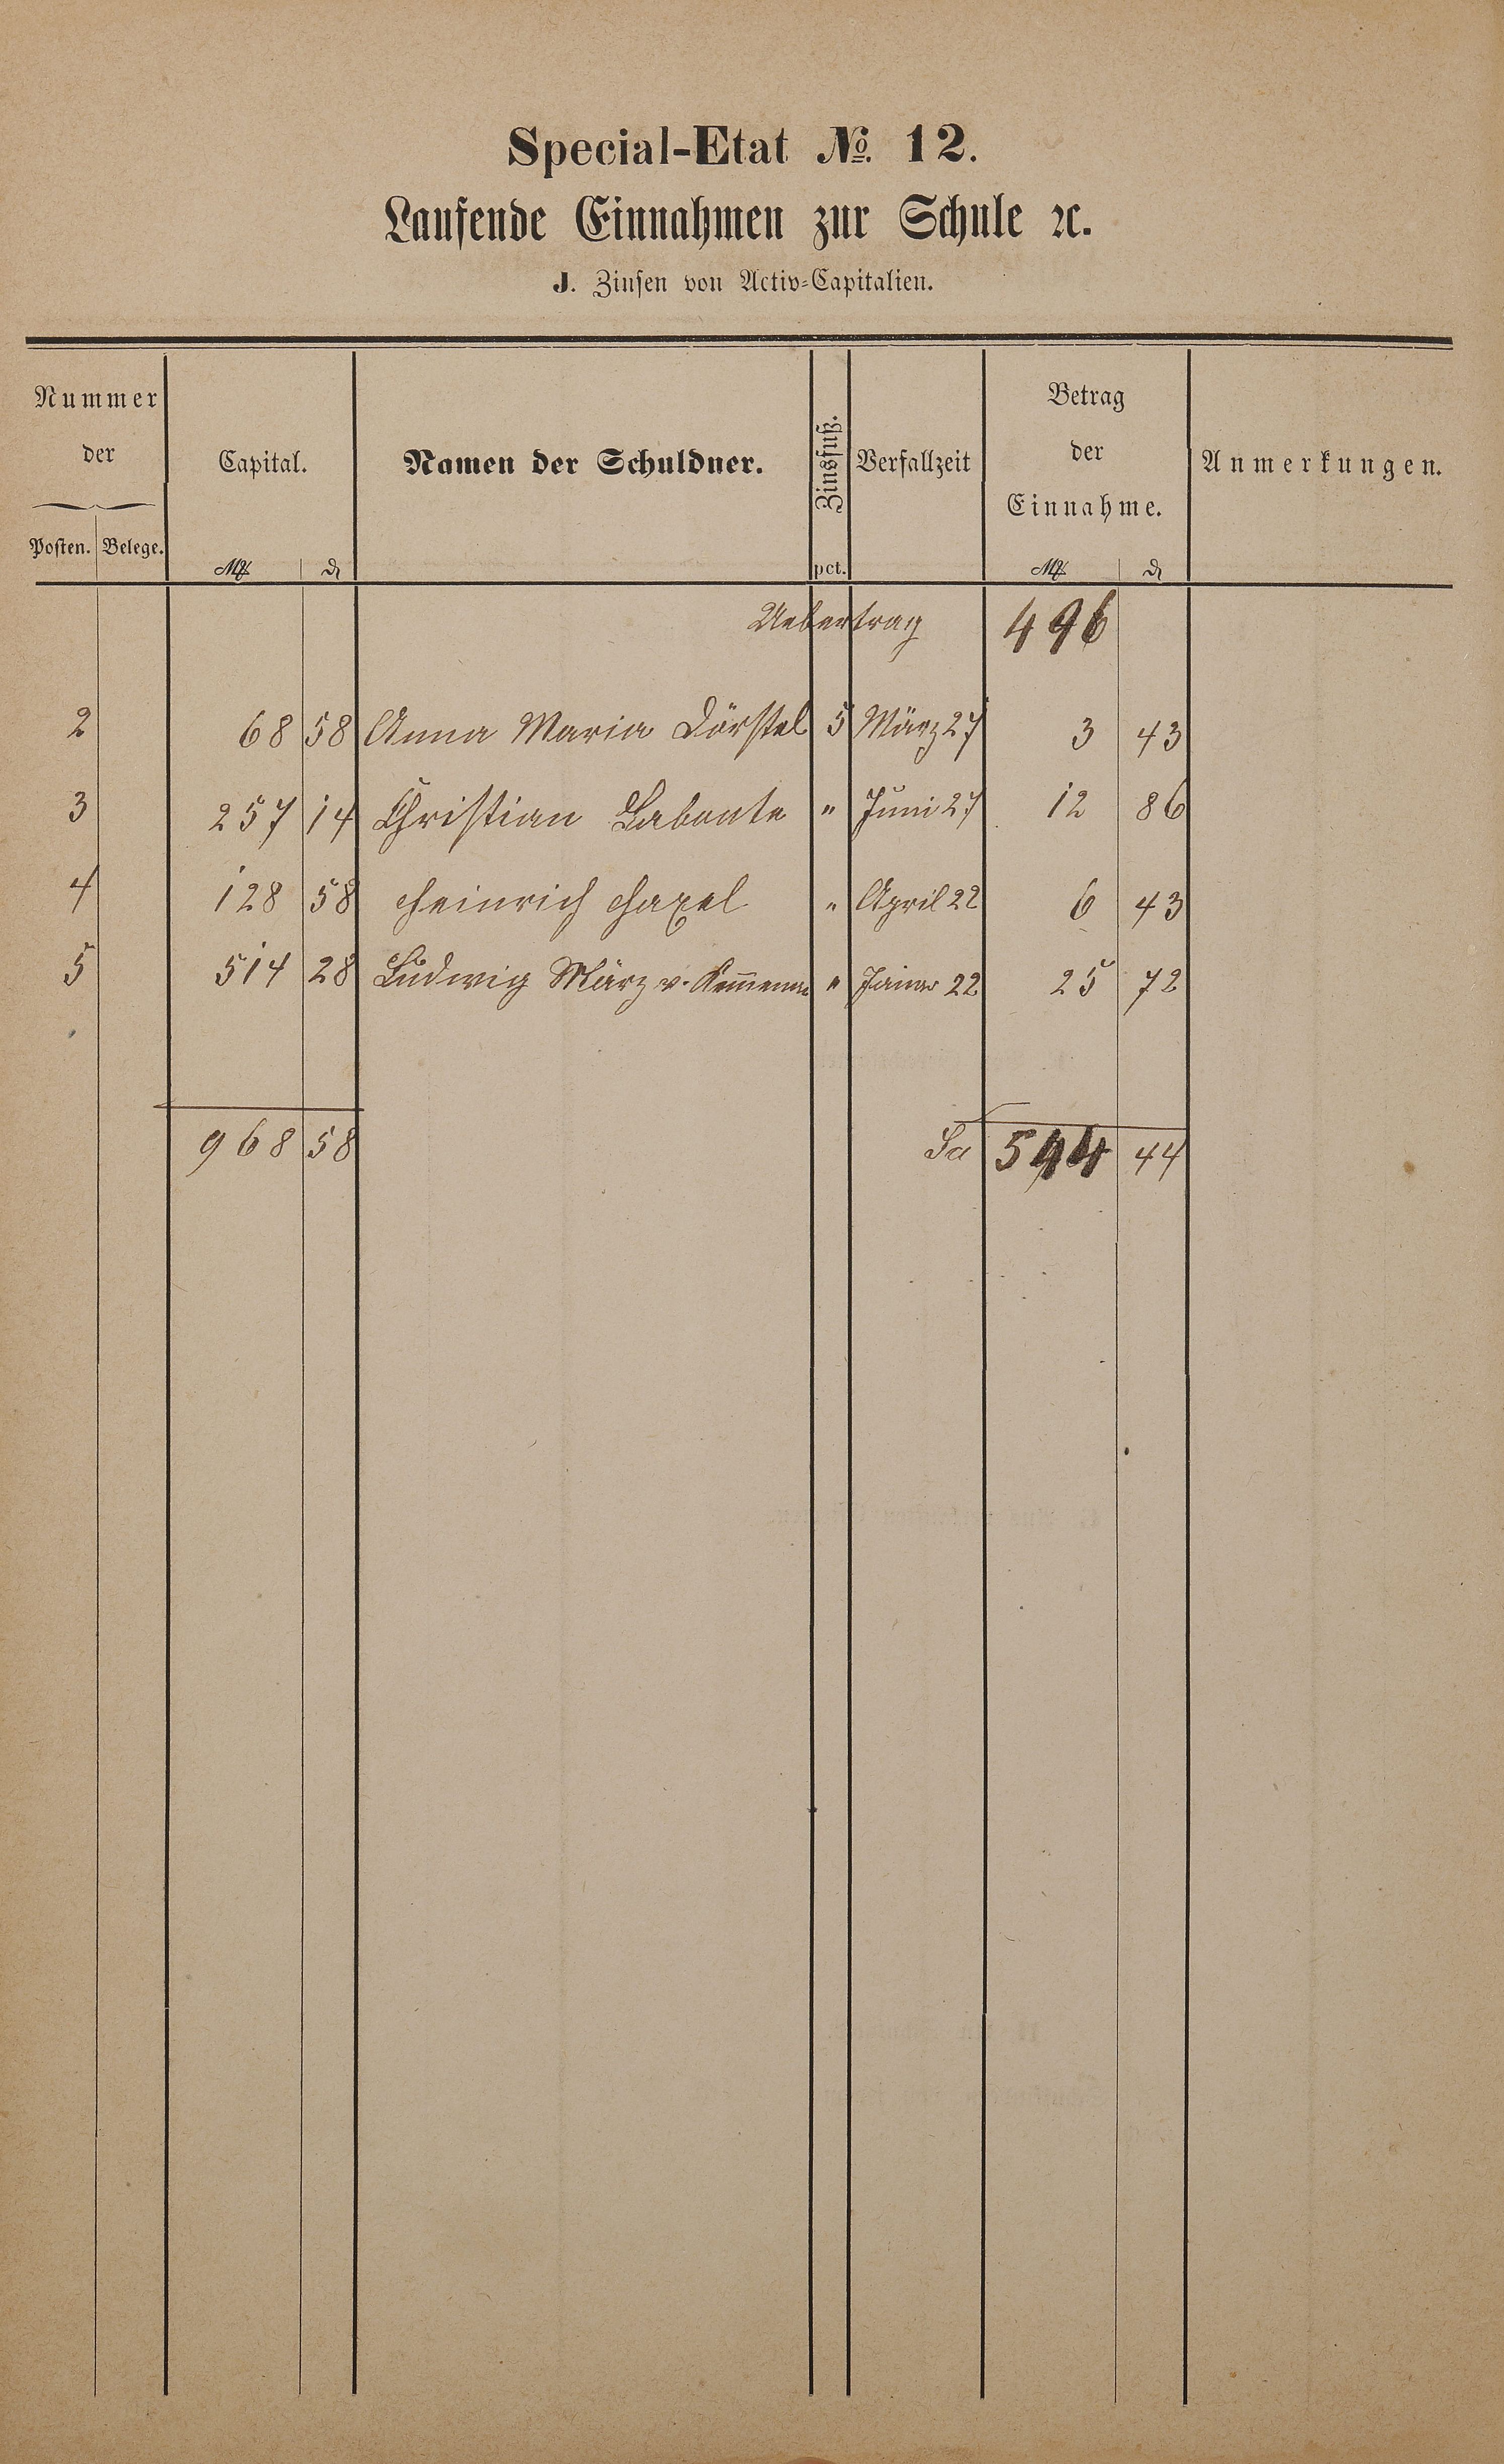 Special-Etat No. 12.
Laufende Einnahmen zur Schule ꝛc.
J. Zinsen von Activ-Capitalien.
Nummer der
Posten. Belege.
Capital.
M ₰
Namen der Schuldner.
Zinsfuß.
pct.
Verfallzeit
Betrag der Einnahme.
M ₰
Anmerkungen.
Uebertrag 496
2 68 58 Anna Maria Dörstel 5 März 27 3 43
3 257 14 Christian Labonte " Juni 27 12 86
4 128 58 Heinrich Haxel " April 22 6 43
5 514 28 Ludwig März v. " Januar 22 25 72
968 58 Sa 544 44